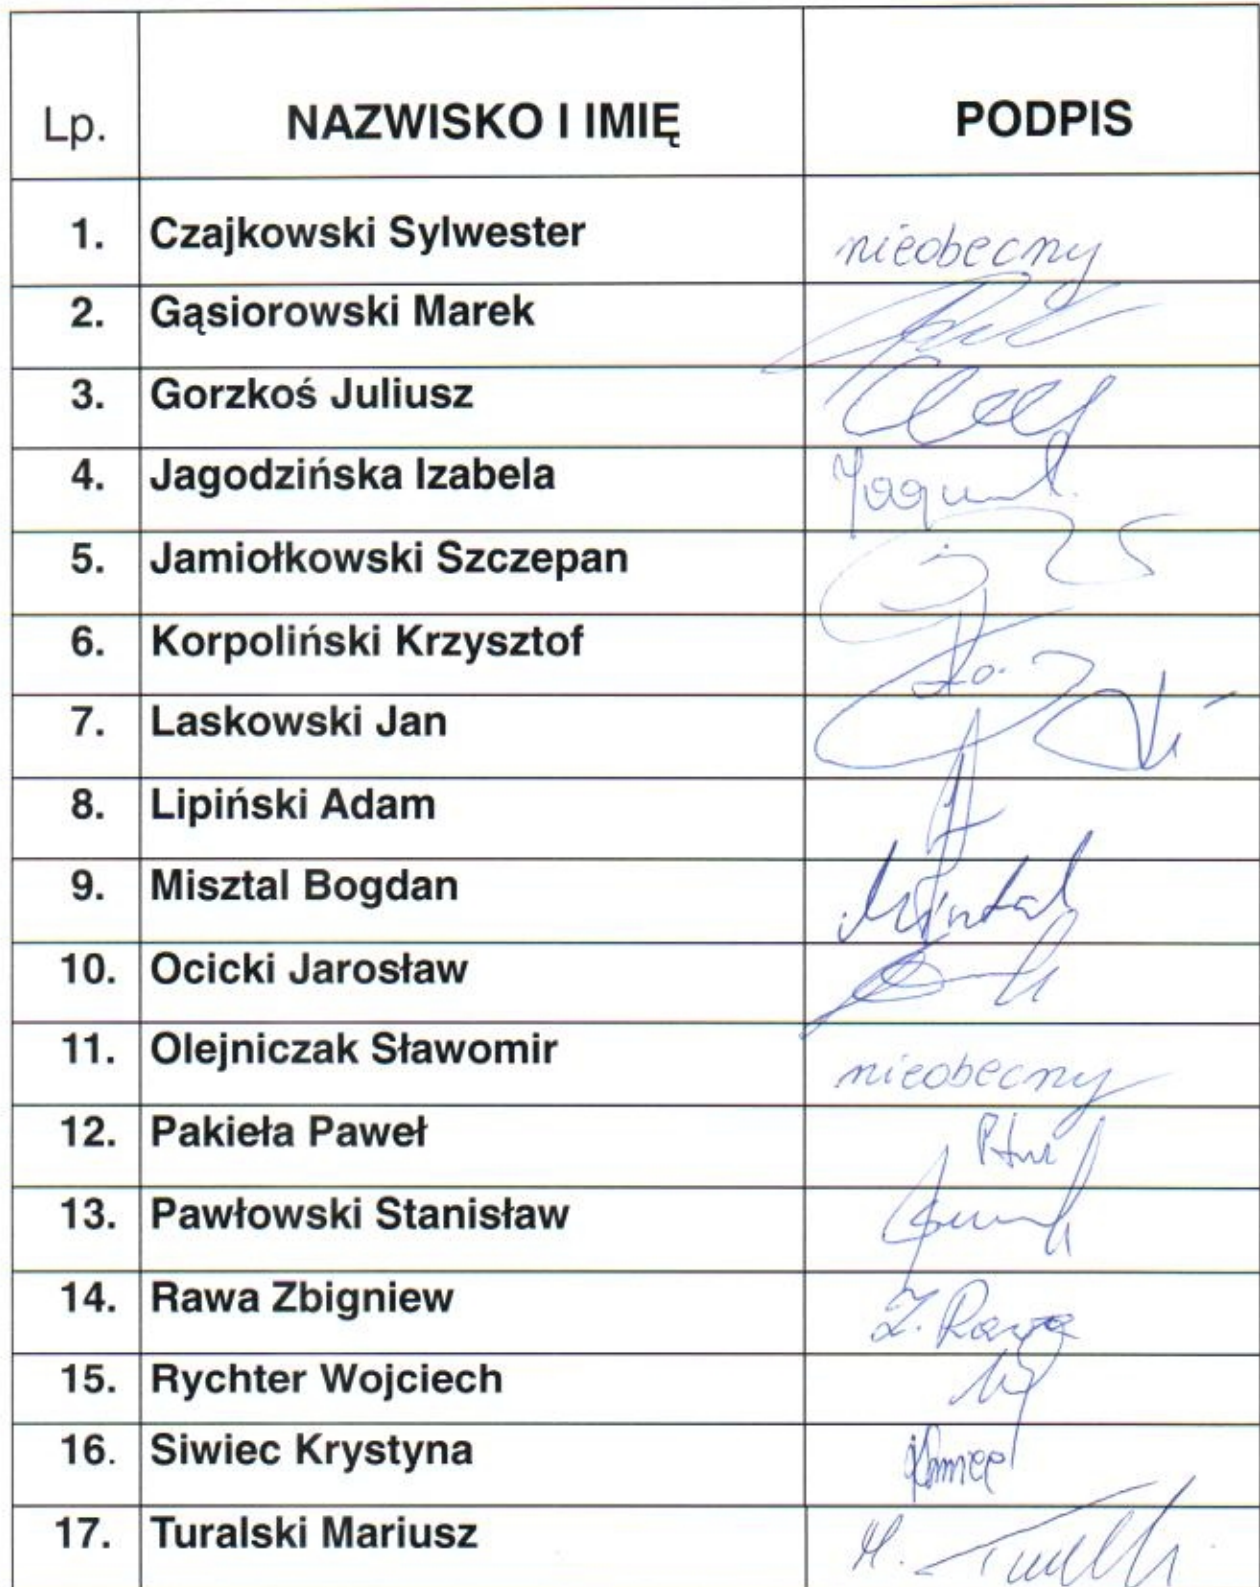 Lp. NAZWISKO I IMIĘ PODPIS
1. Czajkowski Sylwester nieobecny
2. Gąsiorowski Marek
3. Gorzkoś Juliusz
4. Jagodzińska Izabela
5. Jamiołkowski Szczepan
6. Korpoliński Krzysztof
7. Laskowski Jan
8. Lipiński Adam
9. Misztal Bogdan
10. Ocicki Jarosław
11. Olejniczak Sławomir nieobecny
12. Pakieła Paweł
13. Pawłowski Stanisław
14. Rawa Zbigniew Z. Rawa
15. Rychter Wojciech
16. Siwiec Krystyna
17. Turalski Mariusz M.